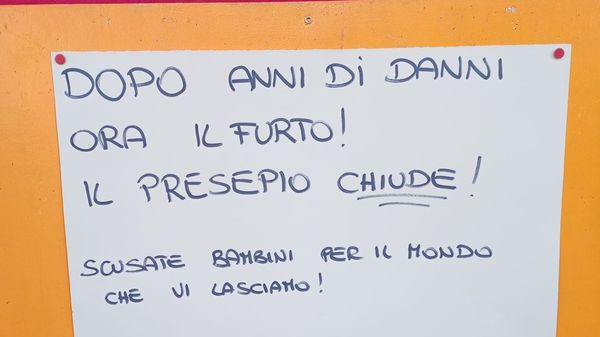 DOPO ANNI DI DANNI
ORA IL FURTO!
IL PRESEPIO CHIUDE!
SCUSATE BAMBINI PER IL MONDO
CHE VI LASCIAMO!